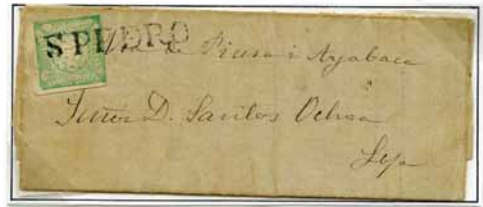 S PEDRO
de Piura i Ayabaca
Señor D. Santos Ochoa